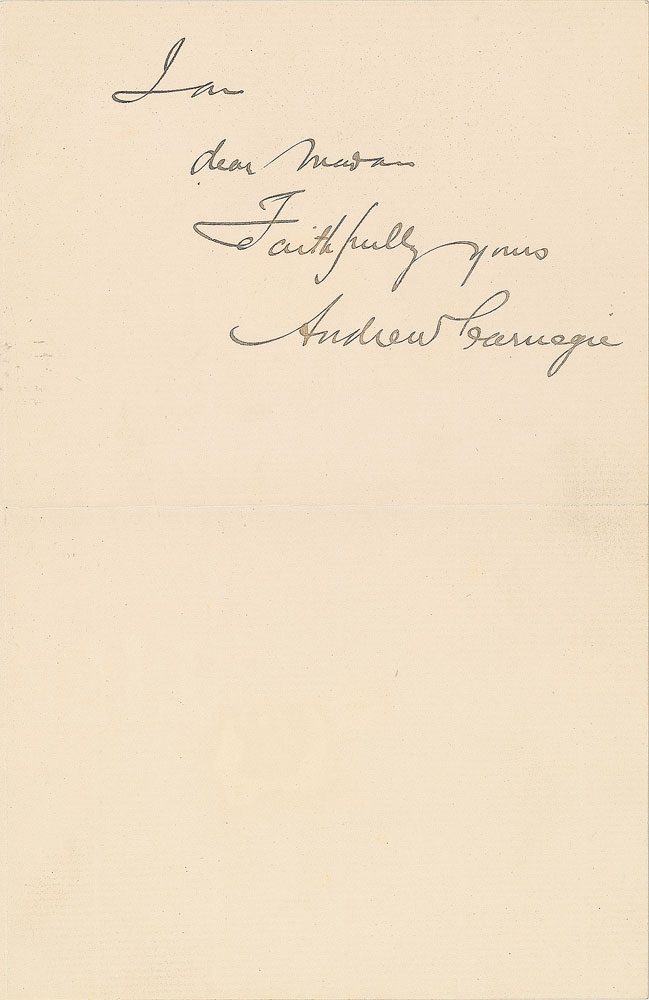 I am
dear Madam
Faithfully yours
Andrew Carnegie